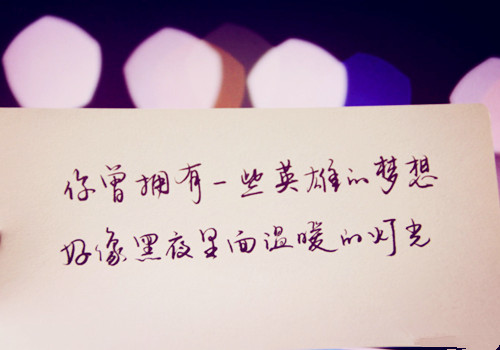 你曾拥有一些英雄的梦想
好像黑夜里面温暖的灯光